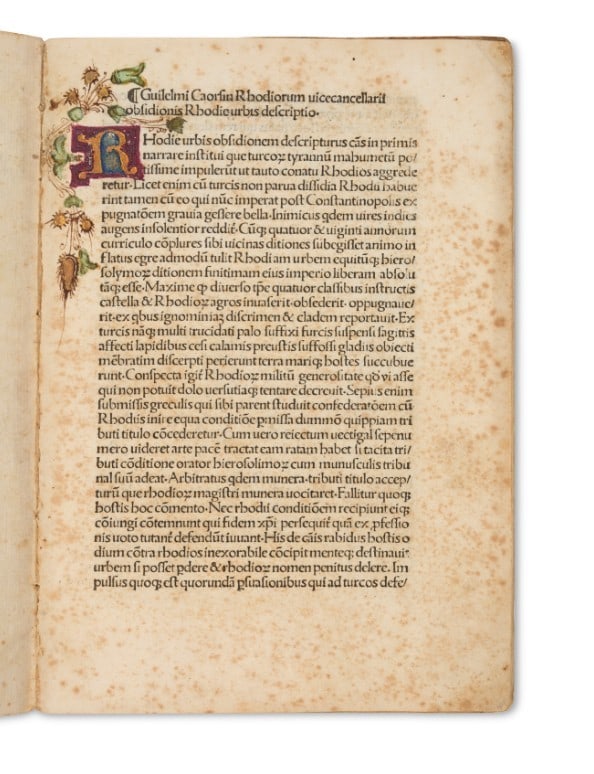 ¶ Guilelmi Caorsin Rhodiorum uicecancellarii
obsidionis Rhodie urbis descriptio.
RHodie urbis obsidionem descripturus cãs in primis
narrare institui que turcoꝝ tyrannũ mahumetũ po/
tissime impulerũt ut tãto conatu Rhodios aggrede
retur. Licet enim cũ turcis non parua dissidia Rhodii habue
rint tamen cũ eo qui nũc imperat post Constantinopolis ex
pugnatõem grauia gessere bella. Inimicus qdem uires indies
augens insolentior reddit̃. Cũqꝫ quatuor & uiginti annorum
curriculo cõplures sibi uicinas ditiones subegisset animo in
flatus egre admodũ tulit Rhodiam urbem equitũqꝫ hiero/
solymoꝝ ditionem finitimam eius imperio liberam absolu
tãqꝫ esse. Maxime ꝙ diuerso tp̃e quatuor classibus instructis
castella & Rhodioꝝ agros inuaserit. obsederit. oppugnaue/
rit. ex qbus ignominiaꝫ discrimen & cladem reportauit. Ex
turcis nãqꝫ multi trucidati palo suffixi furcis suspensi sagittis
affecti lapidibus cesi calamis preustis suffossi gladiis obiecti
mẽbratim discerpti perierunt terra mariqꝫ hostes succubue
runt. Conspecta igit̃ Rhodioꝝ militũ generositate qd̓ ui asse
qui non potuit dolo uersutiaqꝫ tentare decreuit. Sepius enim
submissis greculis qui sibi parent studuit confederatõem cũ
Rhodiis inire equa conditiõe p̃missa dummõ quippiam tri
buti titulo cõcederetur. Cum uero reiectum uectigal sepenu
mero uideret arte pacẽ tractat eam ratam habet si tacita tri/
buti cõditione orator hierosolimoꝝ cum munusculis tribu
nal suũ adeat. Arbitratus qdem munera. tributi titulo accep/
turũ que rhodioꝝ magistri munera uocitaret. Fallitur quoqꝫ
hostis hoc cõmento. Nec rhodii conditiõem recipiunt eiqꝫ
cõiungi cõtemnunt qui fidem xp̃i persequit̃ quã ex ꝓfessio
nis uoto tutant̃ defendũt iuuant. His de cãis rabidus hostis o
dium cõtra rhodios inexorabile cõcipit menteqꝫ destinauit
urbem si posset ꝑdere & rhodioꝝ nomen penitus delere. Im
pulsus quoqꝫ est quorundã ꝑsuasionibus qui ad turcos defe/